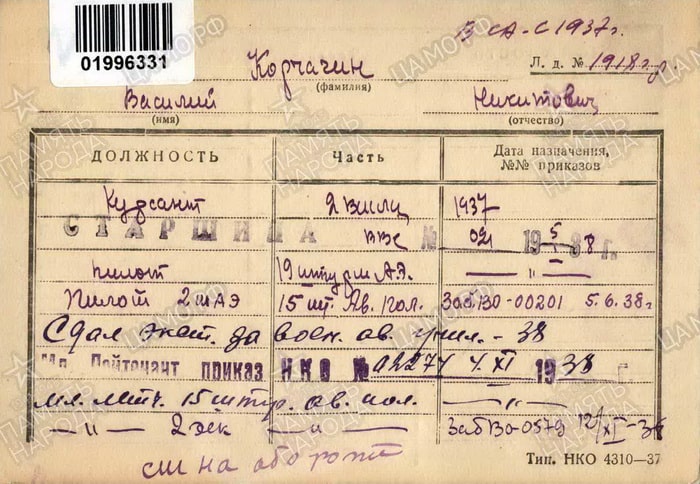 В СА-с 1937г.
01996331
Корчагин Л. д. № 1918г.р.
(фамилия)
Василий Никитович
(имя) (отчество)
ДОЛЖНОСТЬ Часть Дата назначения, №№ приказов
Курсант 1937
СТАРШИНА ВВС № 021 1938 г.
пилот 19 штурм А.Э. — " —
Пилот 2 шАЭ 15 шт. Ав. пол. ЗабВО-00201 5.6.38г
Сдал экст. за воен. ав. учил. - 38
Мл. Лейтенант приказ НКО № 02274 4.XI 1938
мл. лейт. 15 штур. ав. пол. — " —
— " — 2 эск — " — ЗабВО-0579 12/XI-38
см на обороте
Тип. НКО 4310—37
ЦАМО.РФ
ПАМЯТЬ НАРОДА